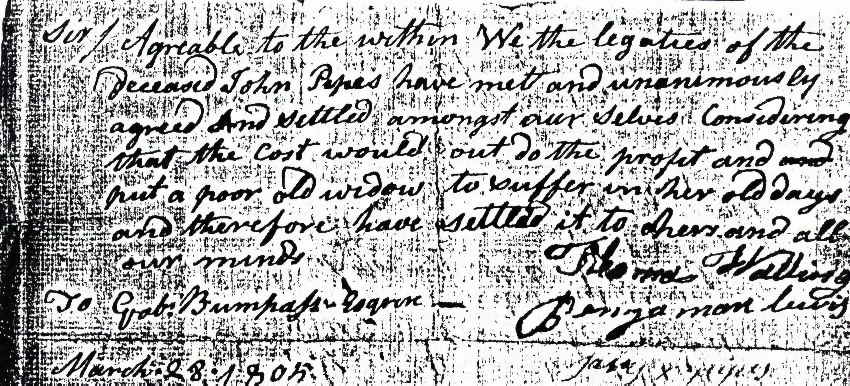 Sir/ Agreable to the within We the legaties of the
deceased John Pipes have met and unanimously
agreed And settled amongst our selves Considering
that the cost would out do the profit and and
put a poor old widow to suffer in her old days
and therefore have settled it to hers and all
our minds
Thomas Walling
To Gabl Bumpass Esquire —
Bengaman Lewis
March 28 1805